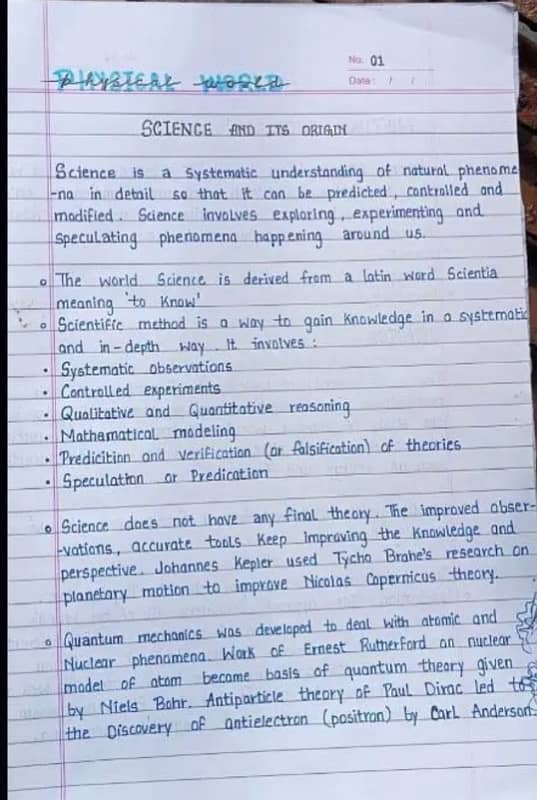 PHYSICAL WORLD
No. 01
Date: / /
SCIENCE AND ITS ORIGIN
Science is a systematic understanding of natural phenome
-na in detail so that it can be predicted, controlled and
modified. Science involves exploring, experimenting and
speculating phenomena happening around us.
The world Science is derived from a latin word Scientia
meaning 'to Know'
Scientific method is a way to gain Knowledge in a systematic
and in-depth way. It involves :
Systematic observations
Controlled experiments
Qualitative and Quantitative reasoning
Mathamatical modeling
Predicition and verification (or falsification) of theories
Speculation or Predication
Science does not have any final theory. The improved obser-
-vations, accurate tools keep improving the Knowledge and
perspective. Johannes Kepler used Tycho Brahe's research on
planetary motion to improve Nicolas Copernicus theory.
Quantum mechanics was developed to deal with atomic and
Nuclear phenomena. Work of Ernest Rutherford on nuclear
model of atom became basis of quantum theory given
by Niels Bohr. Antiparticle theory of Paul Dirac led to
the Discovery of antielectron (positron) by Carl Anderson.